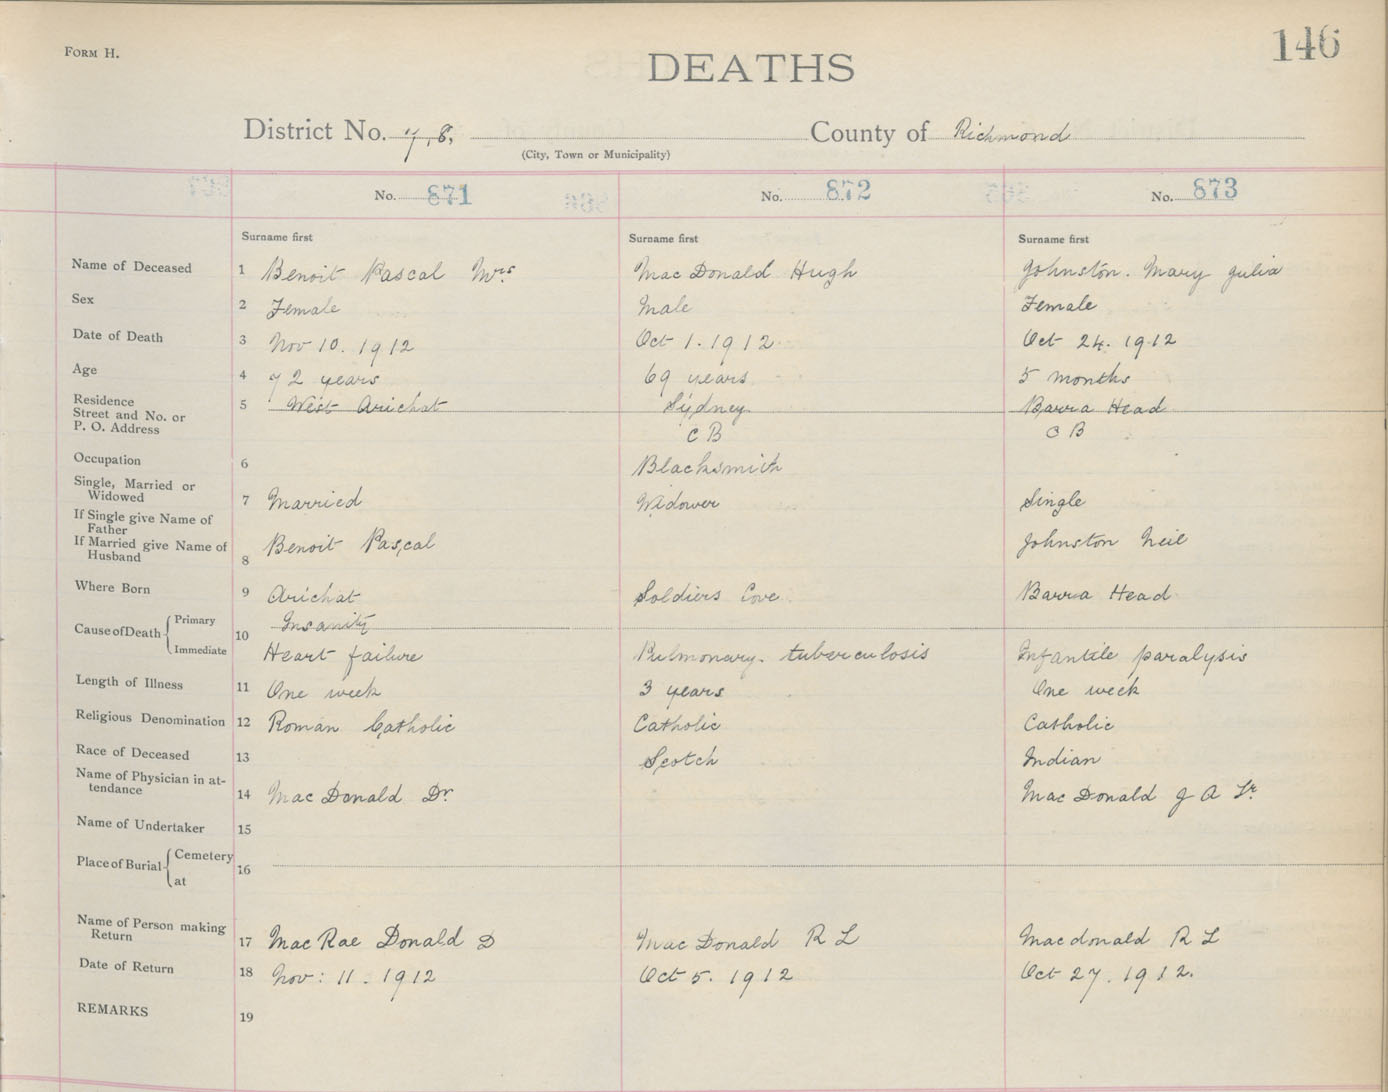 FORM H.
146
DEATHS
District No. 7, 8, County of Richmond
(City, Town or Municipality)
No. 871 No. 872 No. 873
Surname first Surname first Surname first
Name of Deceased 1 Benoit Pascal Mrs. Mac Donald Hugh Johnston. Mary Julia
Sex 2 Female Male Female
Date of Death 3 Nov 10. 1912 Oct 1. 1912 Oct 24. 1912
Age 4 72 years 69 years 5 months
Residence
Street and No. or 5 West Arichat Sydney Barra Head
P. O. Address C B C B
Occupation 6 Blacksmith
Single, Married or
Widowed 7 Married Widower Single
If Single give Name of
Father
If Married give Name of
Husband 8 Benoit Pascal Johnston Neil
Where Born 9 Arichat Soldiers Cove Barra Head
Cause of Death Primary Insanity
10
Immediate Heart failure Pulmonary. tuberculosis Infantile paralysis
Length of Illness 11 One week 3 years One week
Religious Denomination 12 Roman Catholic Catholic Catholic
Race of Deceased 13 Scotch Indian
Name of Physician in at-
tendance 14 Mac Donald Dr. Mac Donald J A
Name of Undertaker 15
Place of Burial Cemetery
16
at
Name of Person making
Return 17 Mac Rae Donald D Mac Donald R L Macdonald R L
Date of Return 18 Nov: 11. 1912 Oct 5. 1912 Oct 27. 1912.
REMARKS 19